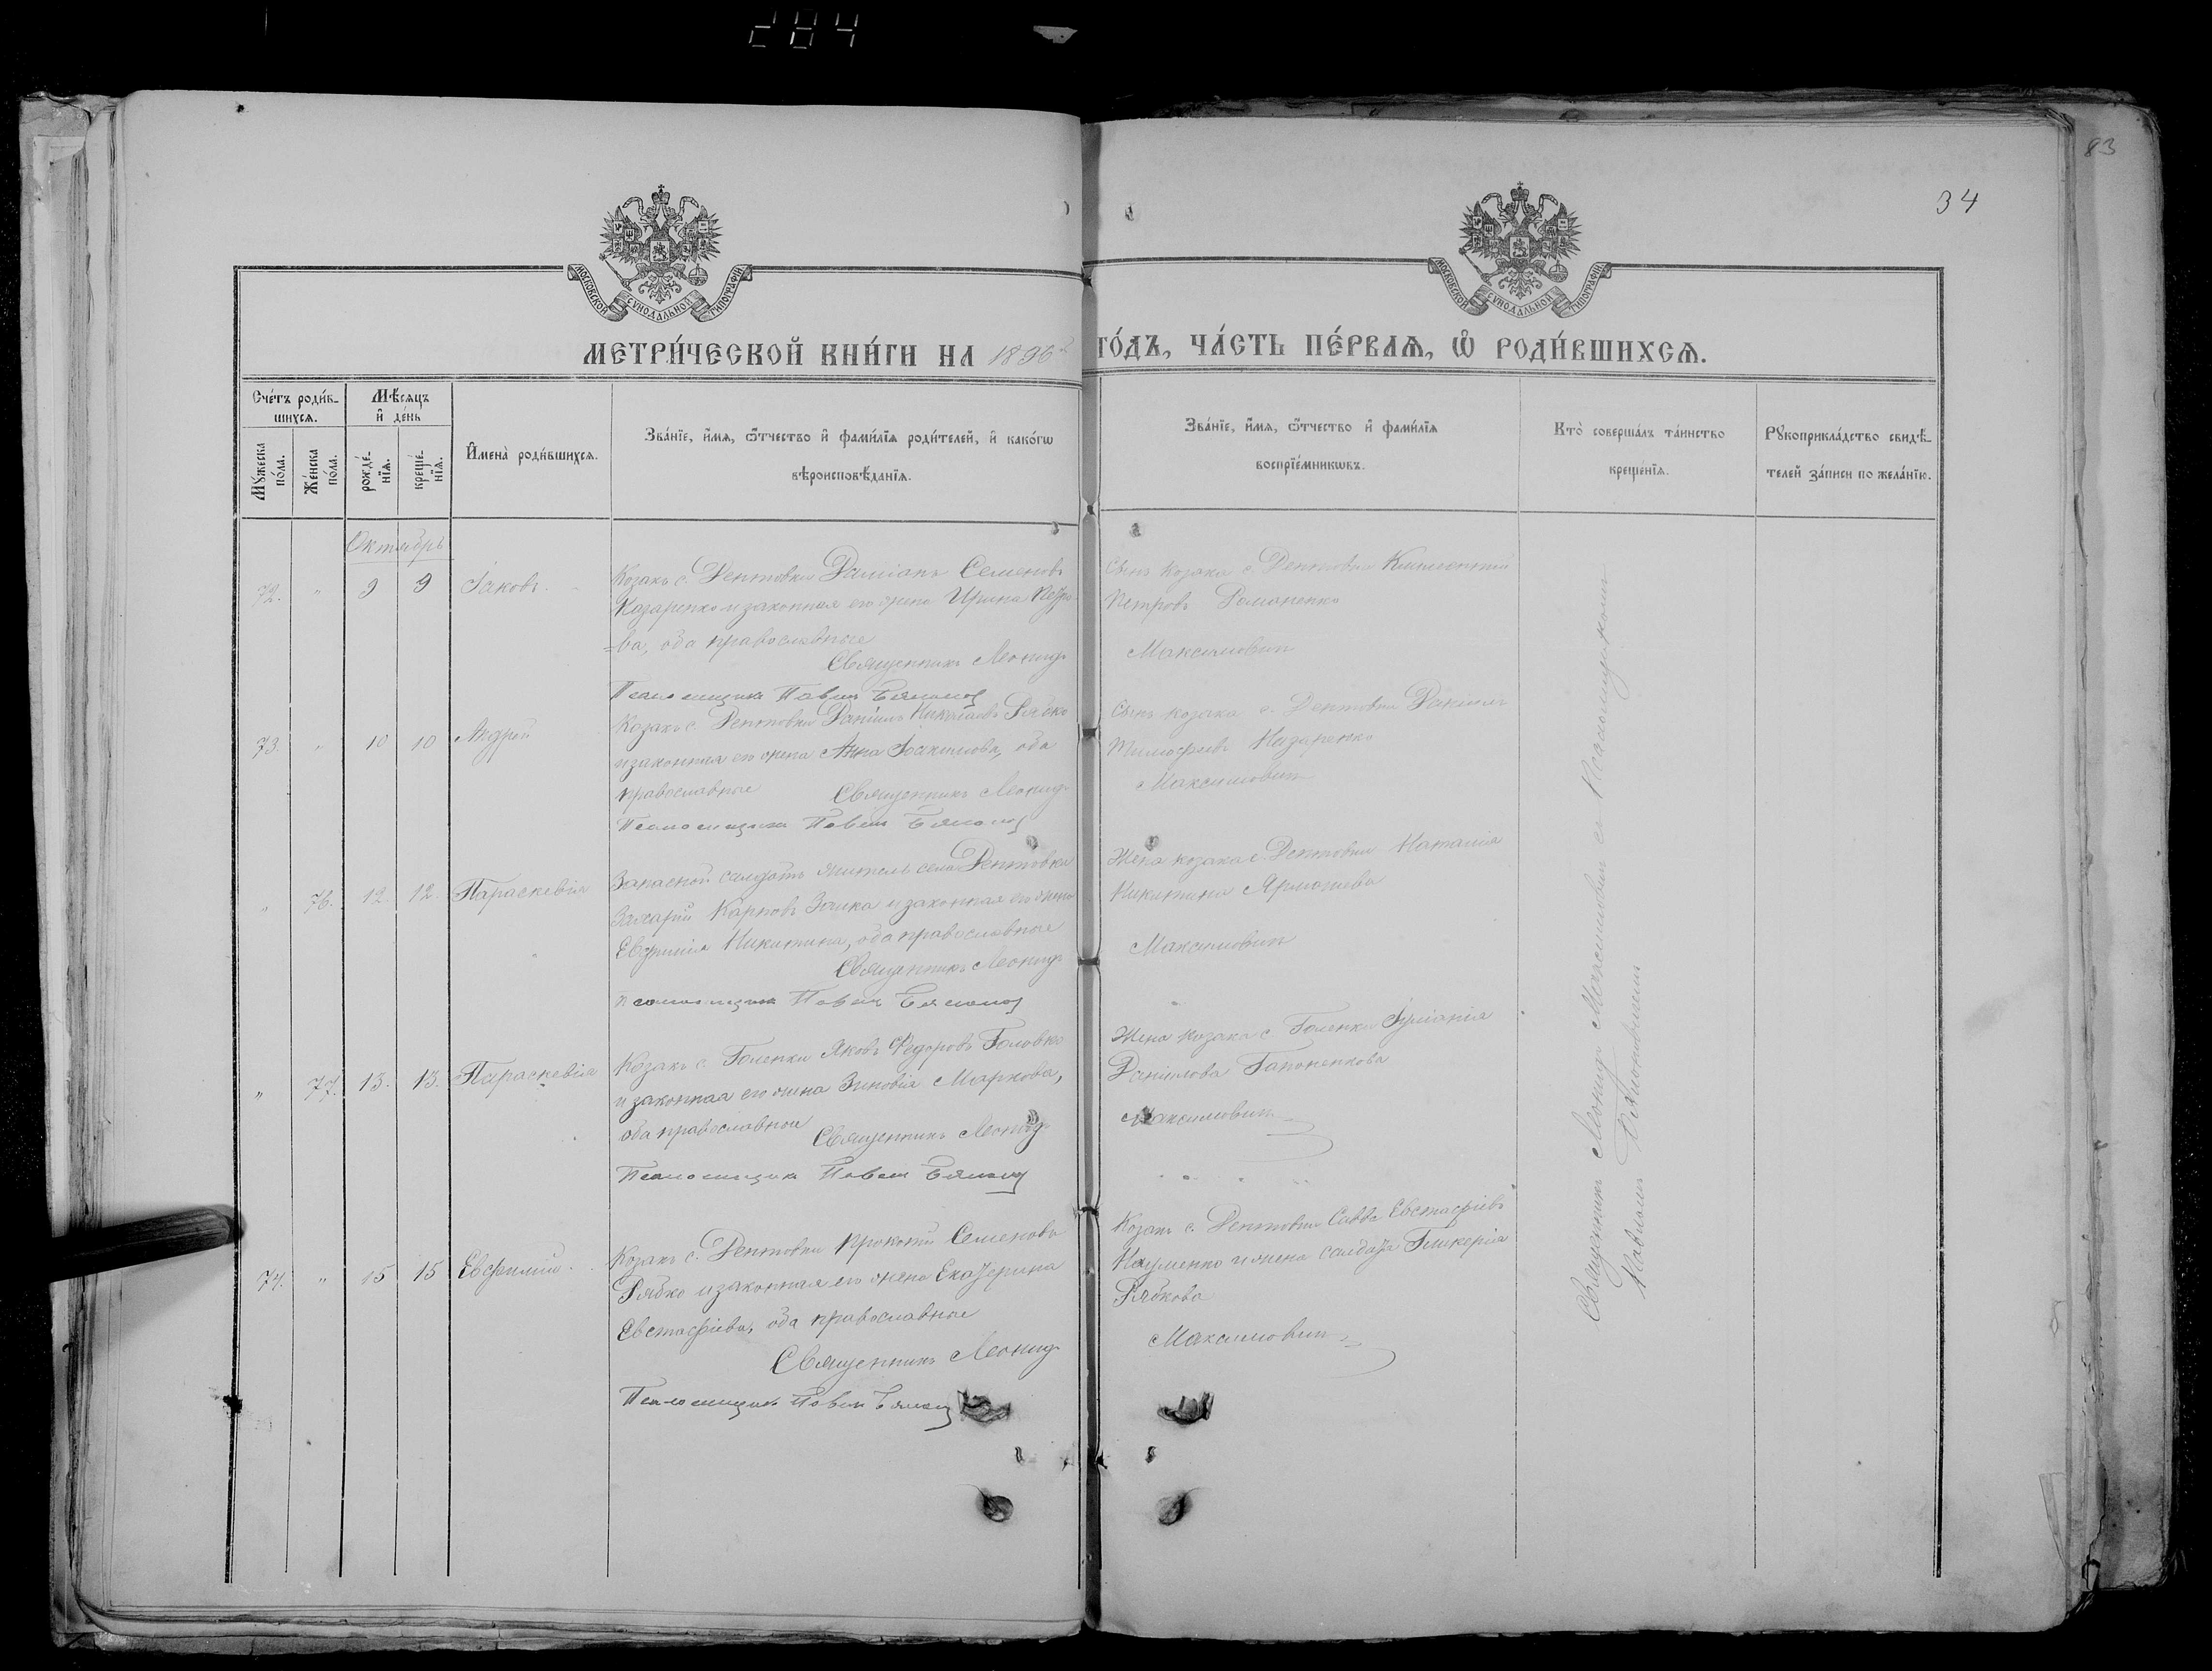 284
83
34
МОСКОВСКОЙ СѴНОДАЛЬНОЙ ТИПОГРАФІИ
МОСКОВСКОЙ СѴНОДАЛЬНОЙ ТИПОГРАФІИ
МЕТРИ́ЧЕСКОЙ КНИ́ГИ НА 1896 ГО́ДЪ, ЧА́СТЬ ПЕ́РВАѦ, Ѡ҆ РОДИ́ВШИХСѦ.
Сче́тъ роди́в-
шихсѧ.
Мꙋ́жеска
по́ла.
Же́нска
по́ла.
Мѣ́сѧцъ
и҆ де́нь
рожде́-
нїѧ.
креще́-
нїѧ.
И҆мена̀ роди́вшихсѧ.
Зва́нїе, и҆́мѧ, ѻ҆́тчество и҆ фами́лїѧ роди́телей, и҆ како́гѡ
вѣроисповѣ́данїѧ.
Зва́нїе, и҆́мѧ, ѻ҆́тчество и҆ фами́лїѧ
воспрїе́мникѡвъ.
Кто̀ соверша́лъ та́инство
креще́нїѧ.
Рꙋкоприкла́дство свидѣ́-
телей за́писи по жела́нїю.
Октябрь
72. " 9 9 Іаковъ.
Козакъ с. Дептовки Даміанъ Семеновъ
Назаренко и законная его жена Ирина Петро
=ва, оба православные
Священникъ Леонид
Псаломщикъ Павелъ
Сынъ козака с. Дептовки
Петровъ Романенко
Максимович
73. " 10 10 Андрей
Козакъ с. Дептовки Даніилъ Николаевъ Рябко
и законная его жена Анна Іоакимова, оба
православные
Священникъ Леонид
Псаломщикъ Павелъ
Сынъ козака с. Дептовки Даніилъ
Тимофеевъ Назаренко
Максимович
" 76. 12. 12. Параскевія
Запасной солдатъ житель села Дептовки
Захарій Карповъ Заика и законная его жена
Евфимія Никитина, оба православные
Священникъ Леонид
Псаломщикъ Павелъ
Жена козака с. Дептовки Наталія
Никитина Ярмошева
Максимович
" 77. 13. 13. Параскевія
Козакъ с. Голенки Яковъ Федоровъ Головко
и законная его жена Зиновія Маркова,
оба православные
Священникъ Леонид
Псаломщикъ Павелъ
Жена козака с. Голенки Іуліанія
Даніилова Гапоненкова
Максимович
74. " 15 15 Евфимій
Козакъ с. Дептовки Прокопій Семеновъ
Рябко и законная его жена Екатерина
Евстафіева, оба православные
Священникъ Леонид
Псаломщикъ Павелъ
Козакъ с. Дептовки Савва Евстафіевъ
Науменко и жена солдата Гликерія
Рябкова
Максимович
Священникъ Леонидъ Максимович съ Псаломщикомъ
Павломъ